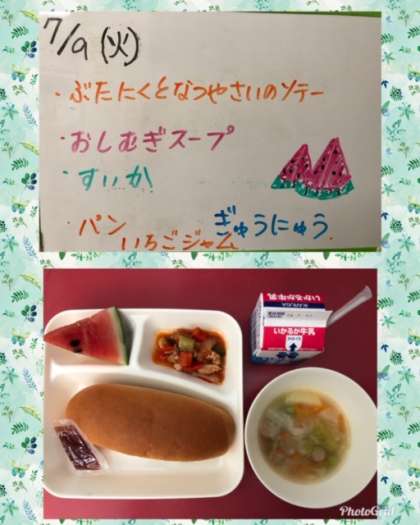 7/9 (火)
・ぶたにくとなつやさいのソテー
・おしむぎスープ
・すいか
・パン ぎゅうにゅう
いちごジャム
いかるが牛乳
いかるが牛乳
PhotoGrid